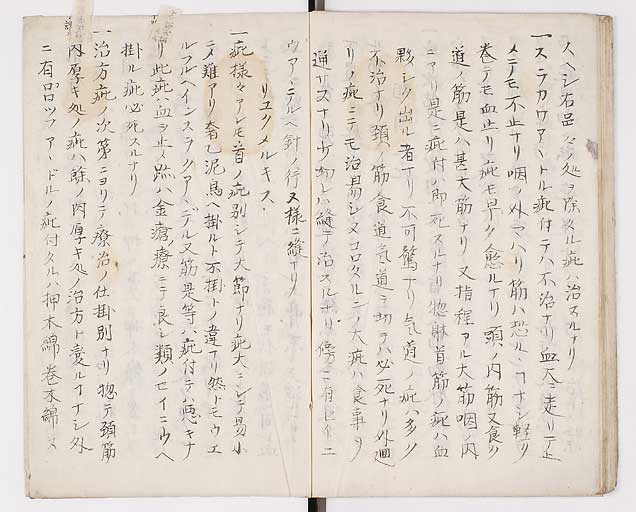 スヘシ右品々ノ処ヲ除クル疵ハ治スルナリ
一スラカウアヽトル疵付テハ不治ナリ血大ニ走リテ止
メテモ不止ナリ咽ノ外マハリ筋ハ恐ルヽコナシ軽ク
巻テモ血止リ疵モ早ク愈ルナリ頭ノ内筋又食ノ
道ノ筋是ハ甚大筋ナリ又指程アル大筋咽ノ内
ニアリ是ニ疵付ハ即死スルナリ惣躰首筋ノ疵ハ血
夥シク出ル者ナリ不可驚ナリ気道ノ疵ハ多ク
不治ナリ頭ノ筋食道気道ヲ切ラハ必死ナリ外廻
リノ疵ニテモ治易シ又コロクルニノ大疵ハ食事ヲ
通サスナリ少切レハ縫テ治スルナリ傍ニ有セイニ
ウアヽテルヘ針ノ行又様ニ縫ナリ
リユクメルキス
一疵様々アレモ首ノ疵別シテ大節ナリ疵大ニシテ易小
ニメ難アリ奢ハ泥烏ヘ掛ルト不掛トノ違アリ然トモウエ
ルフルヘインスラクアヽデル又筋是等ハ疵付テハ悪キナ
リ此疵ハ血ヲ止メ跡ハ金瘡療ニテ良シ類ノセイニウヘ
掛ル疵必死スルナリ
一治方疵ノ次第ニヨリテ療治ノ仕掛別ナリ惣テ頭筋
肉厚キ処ノ疵ハ餘ノ肉厚キ処ノ治方ト変ルコナシ外
ニ有ロロツフアヽドルノ疵付タルハ押木綿巻木綿ヌ